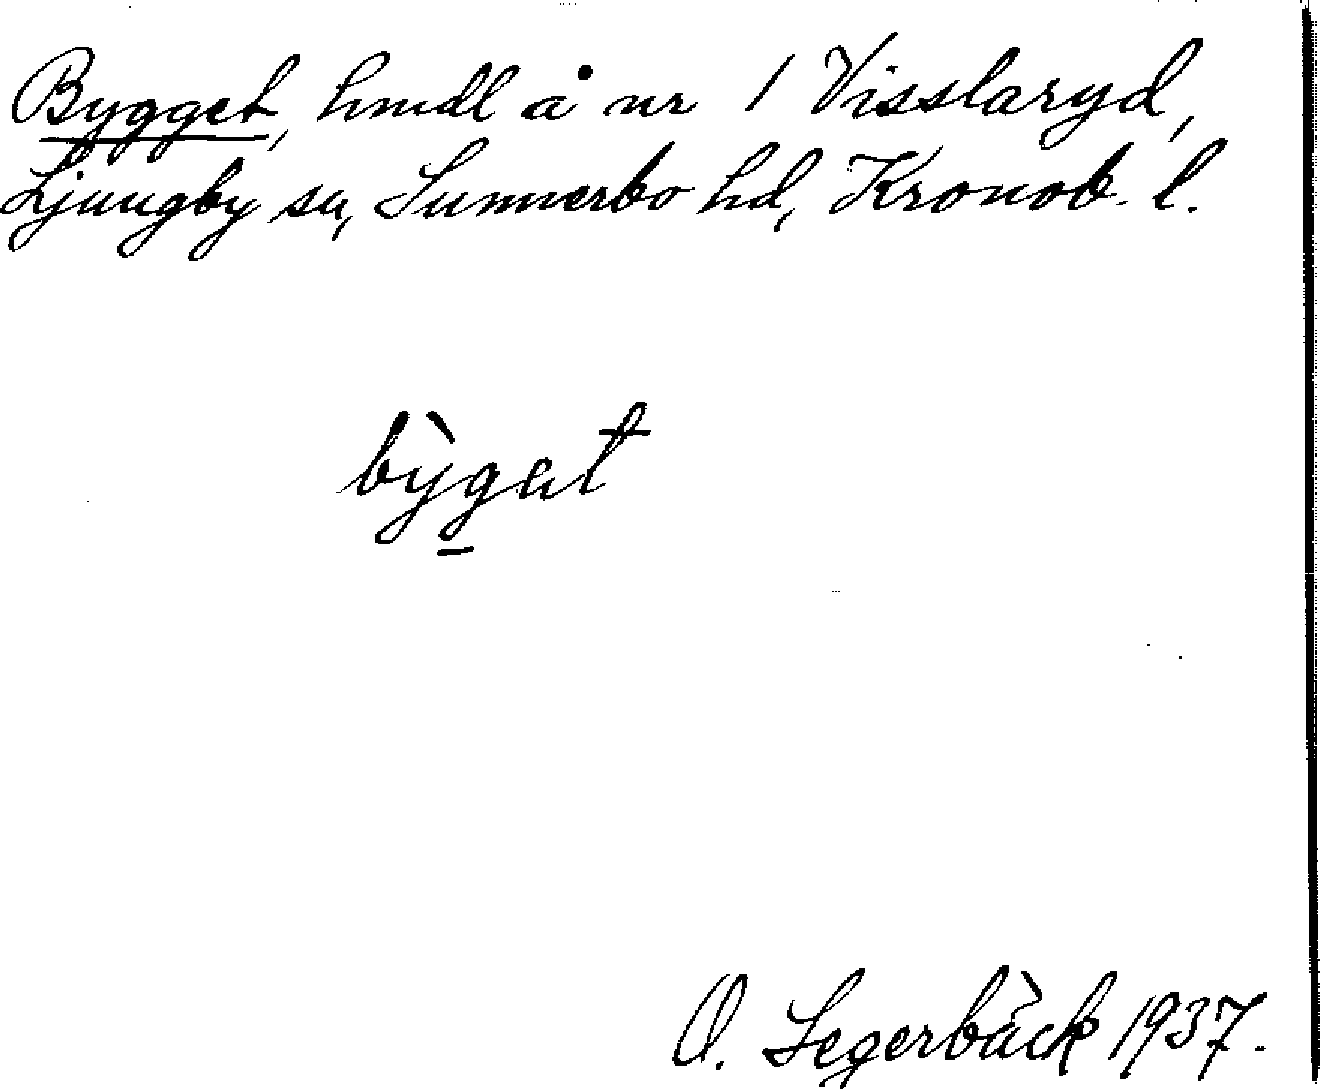 Bygget, hmdl å nr 1 Visslaryd,
Ljungby sn, Sunnerbo hd, Kronob. l.
bỳg̲et
O. Segerbäck 1937.